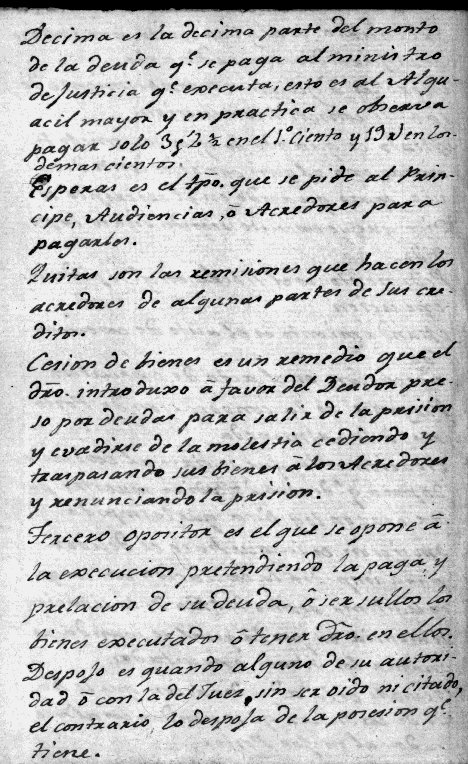 Decima es la decima parte del monto
de la deuda q.e se paga al ministro
de Justicia q.e executa, esto es al Algu-
acil mayor y en practica se observa
pagar solo 3 2½ en el 1.o Ciento y 19 en los
demas cientos.
Esperas es el tpo. que se pide al Prin-
cipe, Audiencias, ô Acredores para
pagarles.
Quitas son las remisiones que hacen los
acredores de algunas partes de sus cre-
ditos.
Cesion de bienes es un remedio que el
dro. introduxo â favor del Deudor pre-
so por deudas para salir de la prision
y evadirse de la molestia cediendo y
traspasando sus bienes â los Acredores
y renunciando la prision.
Tercero opositor es el que se opone â
la execucion pretendiendo la paga, y
prelacion de su deuda, ô ser sullos los
bienes executados ô tener dro. en ellos.
Despojo es quando alguno de su autori-
dad ô con la del Juez, sin ser oido ni citado,
el contrario, lo despoja de la posesion q.e
tiene.